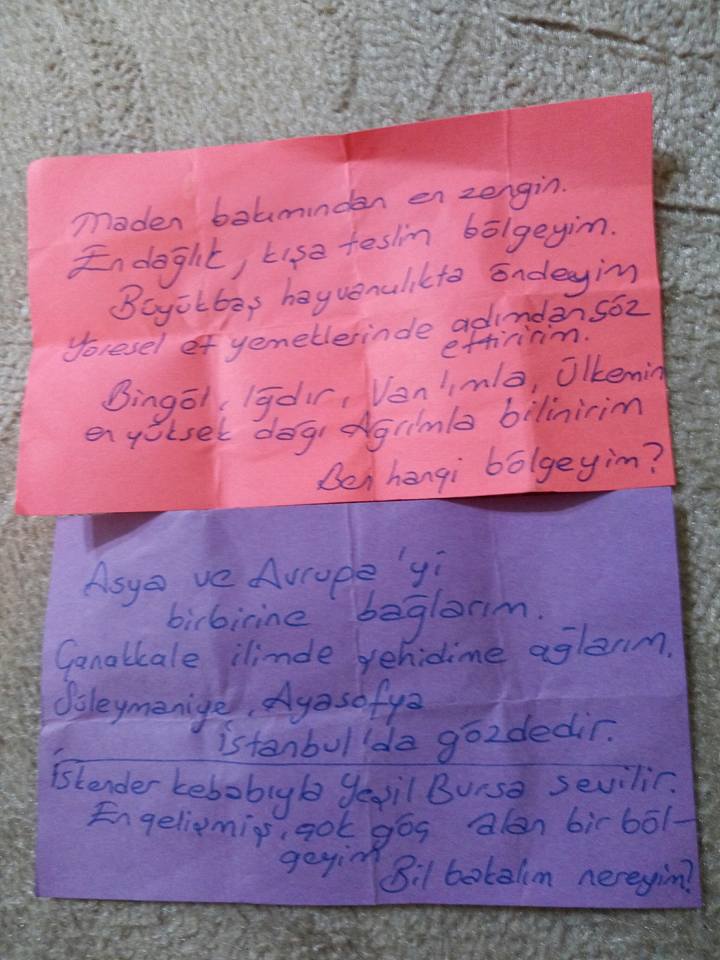 Maden bakımından en zengin.
En dağlık, kışa teslim bölgeyim.
Büyükbaş hayvancılıkta öndeyim
Yöresel et yemeklerinde adımdan söz
ettiririm.
Bingöl, Iğdır, Van'ımla, Ülkemin
en yüksek dağı Ağrımla bilinirim
Ben hangi bölgeyim?
Asya ve Avrupa'yi
birbirine bağlarım.
Çanakkale ilimde şehidime ağlarım.
Süleymaniye, Ayasofya
İstanbul'da gözdedir.
İskender kebabıyla Yeşil Bursa sevilir.
En gelişmiş, çok göç alan bir böl-
geyim
Bil bakalım nereyim?